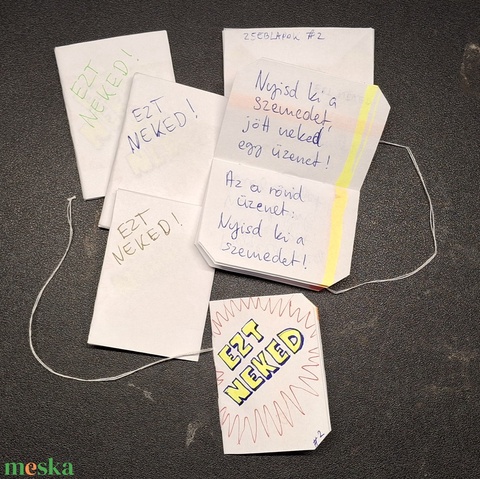 ZSEBLAPOK #2
EZT
NEKED!
EZT
NEKED!
EZT
NEKED!
Nyisd ki a
szemedet,
jött neked
egy üzenet!
Az a rövid
üzenet:
Nyisd ki a
szemedet!
EZT
NEKED
#2
meska